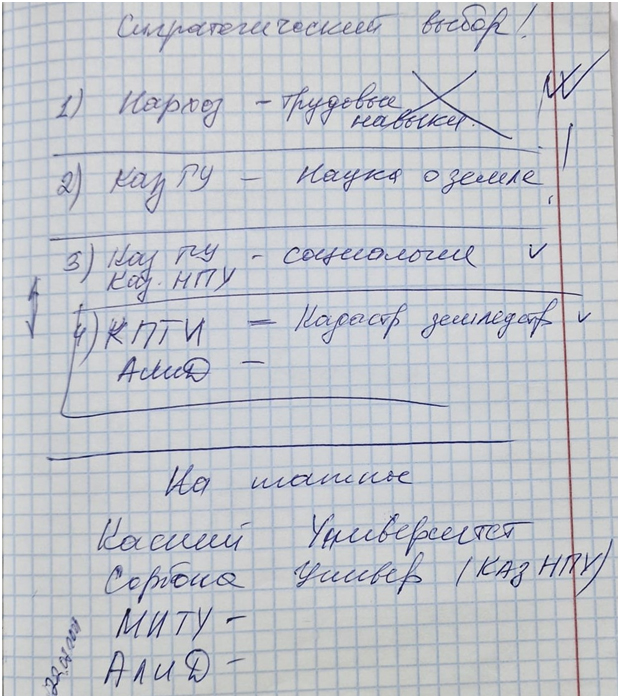 Стратегический выбор!
1) Нархоз - трудовые
навыки.
2) Каз ГУ - Наука о земле
3) Каз ГУ - социология
Каз. НПУ
4) КПТИ = Кадастр землеустр
АлиД -
На платные
Каспий Университет
Сорбона Универ (Каз НПУ)
МИТУ -
АлиД -